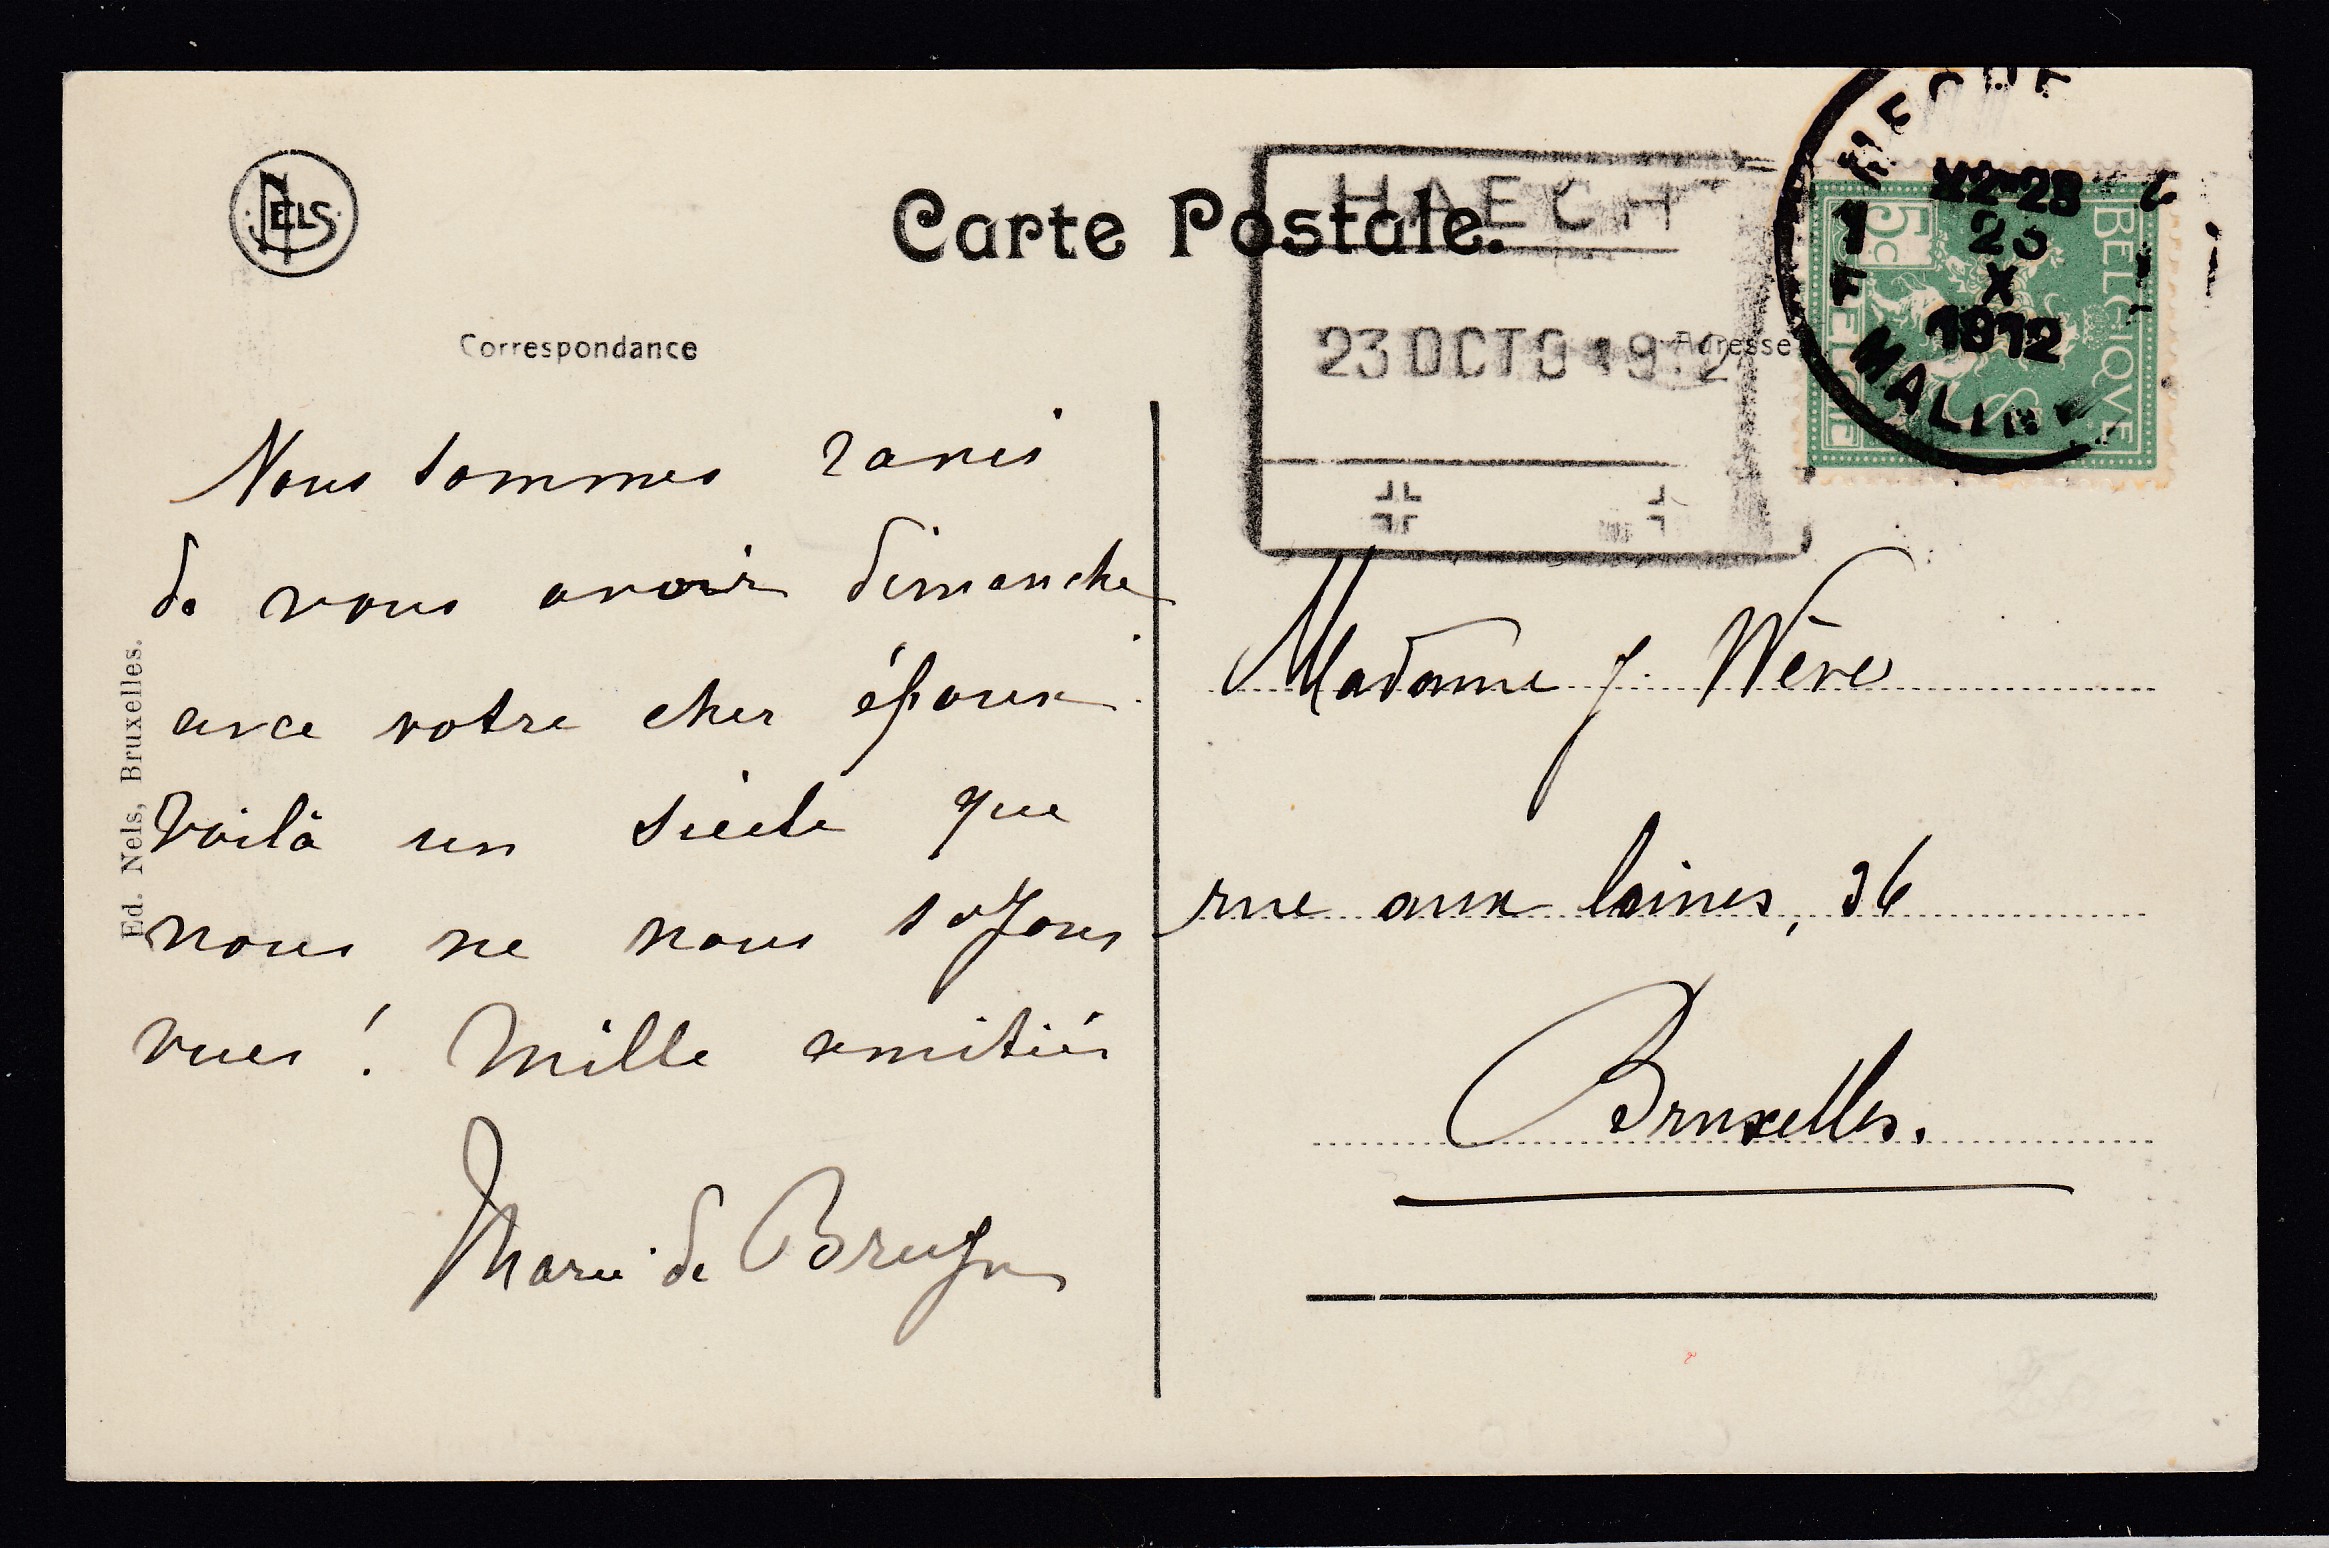 NELS
Carte Postale.
HAECHT
23 OCTO 1912
Correspondance
Adresse
22-23
23
X
1912
MALINES
5c
BELGIQUE
BELGIË
Nous sommes ravis
de vous avoir dimanche
avec votre cher époux.
Voilà un siècle que
nous ne nous soyons
vues ! Mille amitiés
Marie de Bruyn
Madame J. Wève
rue aux laines, 36
Bruxelles.
Ed. Nels, Bruxelles.